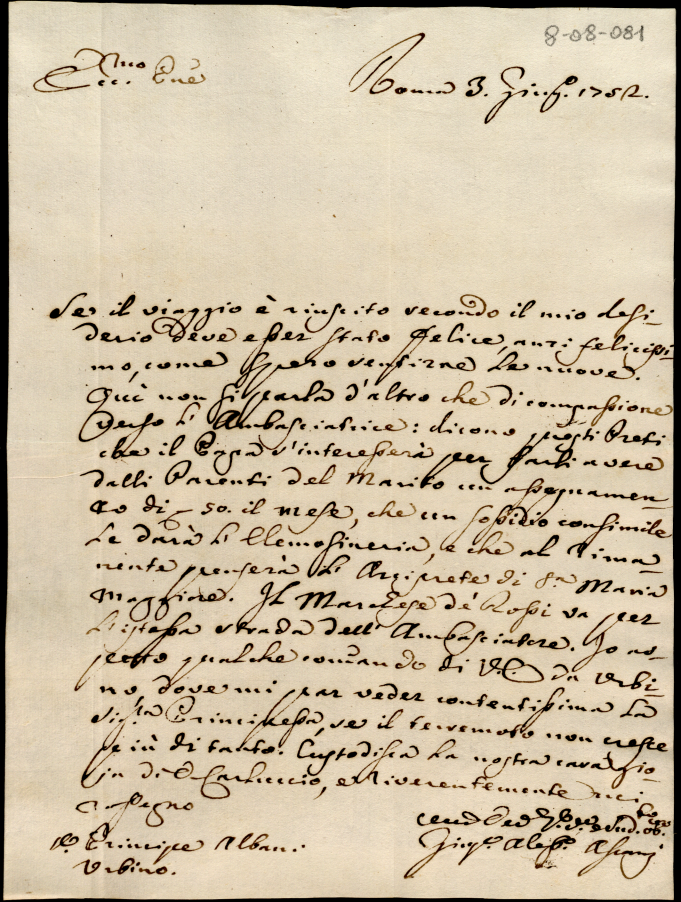 8-08-081
Ecc.mo Pne
Roma 3. Giug.o 1752.
Se il viaggio è riuscito secondo il mio desi-
derio deve esser stato felice, anzi felicissi-
mo, come spero sentirne le nuove.
Qui non si parla d'altro che di compassione
verso l'Ambasciatrice: dicono questi Preti
che il Papa s'interesserà per farli avere
dalli Parenti del Marito un assegnamen-
to di 50. il mese, che un sossidio consimile
le darà l'Elemosineria, e che al rima-
nente penserà l'Arciprete di S.a Maria
Maggiore. Il Marchese de' Rossi va per
l'istessa strada dell'Ambasciatore. Io as-
petto qualche comando di V.E. da Urbi-
no, dove mi par veder contentissima la
Sig.ra Principessa, se il terremoto non cresce
più di tanto. Custodisca la nostra cara gio-
ja di D. Carluccio, e riverentemente mi
rassegno
Principe Albani
Urbino.
Giuse. Aless.